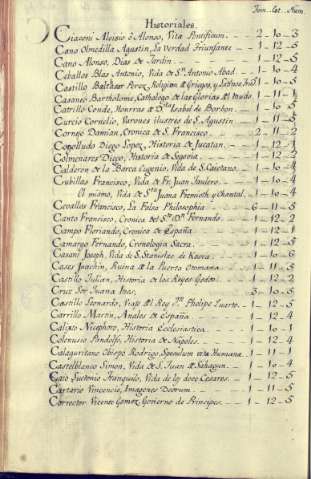 Tom. Est. Num.
Historiales.
Ciaconi Aloisio ò Alonso, Vita Pontificum. — 2 - 10 - 3
Cano Olmedilla Agustin, La Verdad Triunfante — 1 - 12 - 5
Cano Alonso, Dias de Jardin. — 1 - 12 - 5
Ceballos Blas Antonio, Vida de Sn. Antonio Abad — 1 - 10 - 4
Castillo Balthasar Perez, Religion de Griegos, y
Casaneo Bartholome, Cathalogo de las Glorias del Mundo 1 - 11 - 1
Catrillo Conde, Honrras de Dª. Isabel de Borbon. — 1 - 10 - 5
Curcio Cornelio, Varones ilustres de S. Agustin — 1 - 11 - 5
Cornejo Damian, Cronica de S. Francisco — 2 - 11 - 2
Cogolludo Diego Lopez, Historia de Jucatan — 1 - 12 - 1
Colmenares Diego, Historia de Segovia — 1 - 12 - 2
Calderon de la Barca Eugenio, Vida de S. Caietano — 1 - 10 - 4
Cubillas Francisco, Vida de Fr. Juan — 1 - 10 - 4
El mismo, Vida de Sta. Juana Fremioth, y Chantal. 1 - 10 - 4
Cevallos Francisco, La Falsa Philosophia — 6 - 11 - 5
Canto Francisco, Cronica del Sr. Dn. Fernando — 1 - 12 - 2
Campo Floriando, Cronica de España — 1 - 12 - 1
Camargo Fernando, Cronologia Sacra. — 1 - 12 - 5
Casani Joseph, Vida de S. Stanislao de Koska — 1 - 10 - 6
Cases Joachin, Ruina de la Puerta Otomana — 1 - 11 - 5
Castillo Julian, Historia de los Reyes Godos — 1 - 12 - 2
Cruz Sor Juana Ines. — 3 - 10 - 5
Castillo Leonardo, Viaje del Rey Dn. Phelipe Quarto. 1 - 12 - 5
Carrillo Martin, Anales de España — 1 - 12 - 4
Calixto Nicephoro, Historia Ecclesiastica — 1 - 10 - 1
Colenusio Pandolfo, Historia de Napoles — 1 - 12 - 4
Calaguritano Obispo Rodrigo, Speculum vitæ Humanæ 1 - 11 - 1
Castelblanco Simon, Vida de S. Juan de Sahagun — 1 - 10 - 4
Caio Suetonio Tranquilo, Vida de los doce Cesares. — 1 - 12 - 5
Cartario Vincencio, Imagines Deorum — 1 - 11 - 5
Corrector Vicente Gomez, Govierno de Principes. — 1 - 12 - 5